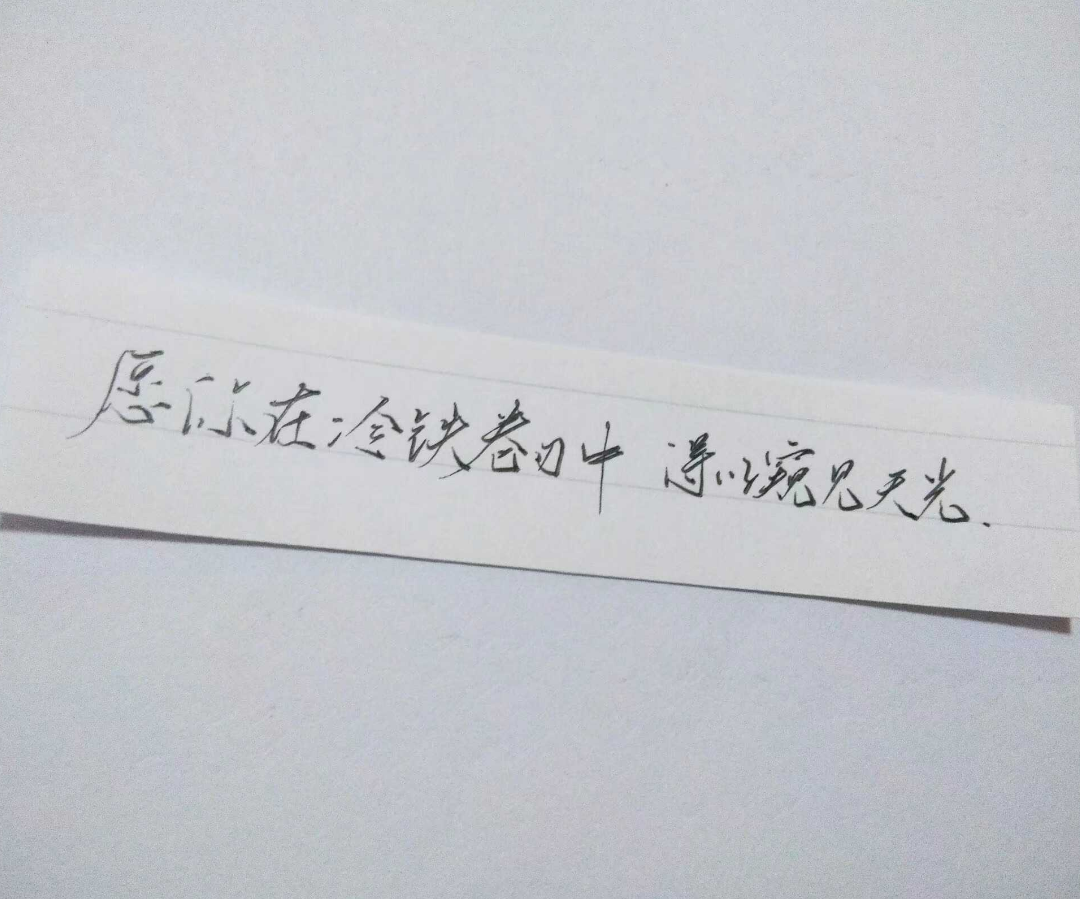 愿你在冷铁卷刃中 得以窥见天光.